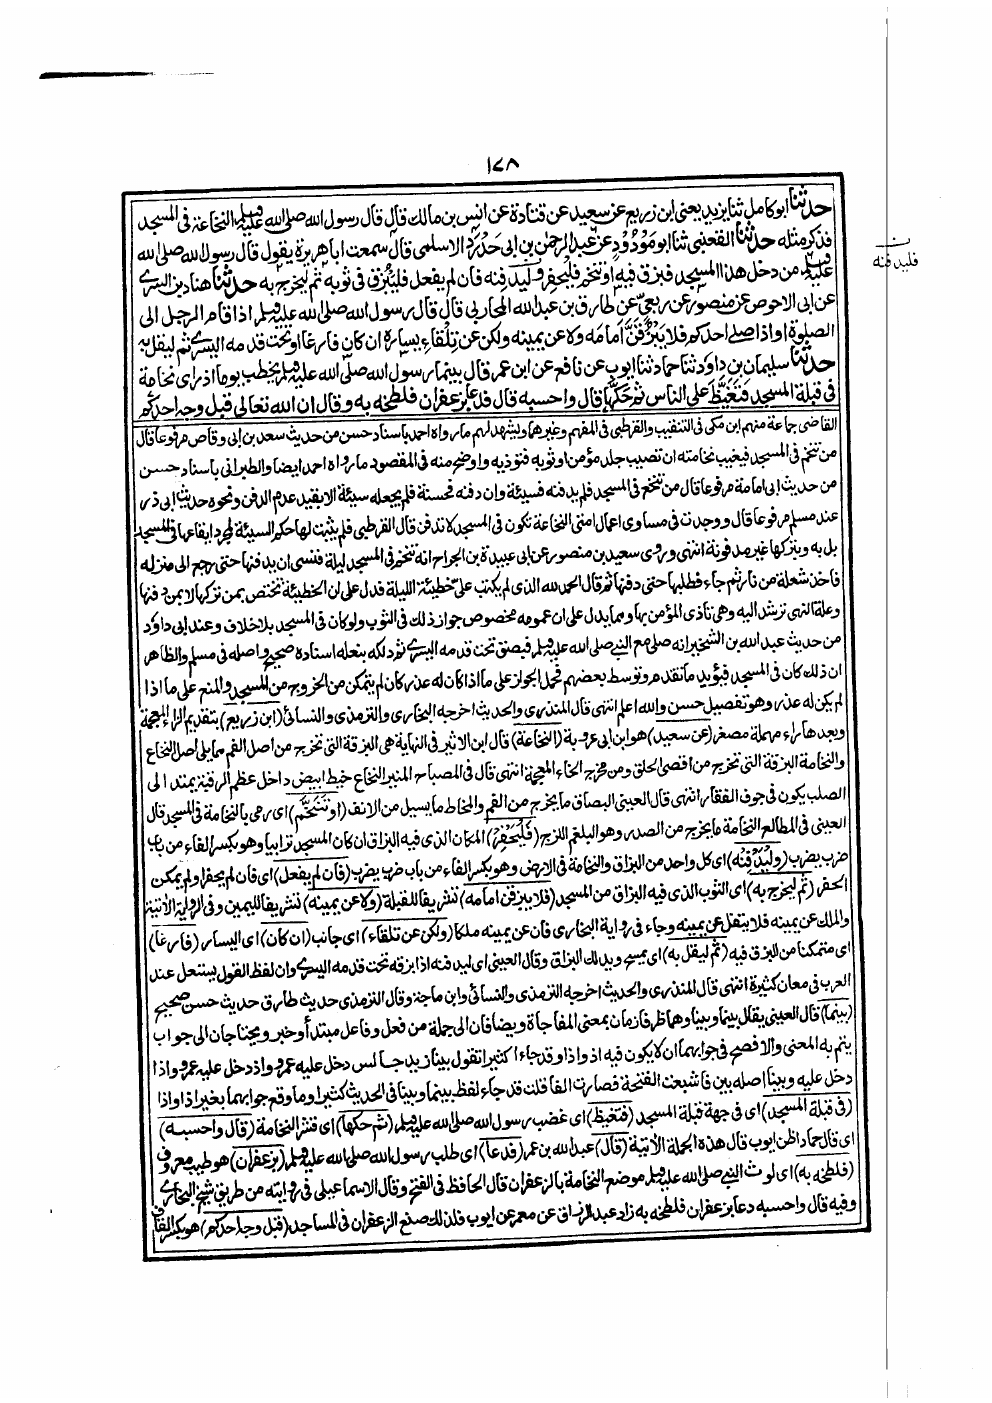 ١٧٨
حدثنا ابو كامل ثنا يزيد يعنى ابن زريع عن سعيد عن قتادة عن انس بن مالك قال قال رسول الله صلى الله عليه وسلم النخاعة فى المسجد
فذكر مثله حدثنا القعنبى ثنا ابو مَوْدُودٍ عن عبد الرحمٰن بن ابى حَدْرَدٍ الاسلمى قال سمعت ابا هريرة يقول قال رسول الله صلى الله
فليدفنه
عليه وسلم من دخل هذا المسجد فبزق فيه او تنخم فليحفر وليدفنه فان لم يفعل فليبزق فى ثوبه ثم ليخرج به حدثنا هناد بن السرى
عن ابى الاحوص عن منصور عن ربعى عن طارق بن عبد الله المحاربى قال قال رسول الله صلى الله عليه وسلم اذا قام الرجل الى
الصلوة او اذا صلى احدكم فلا يبزقنّ امامه ولا عن يمينه ولكن عن تِلقاءِ يساره ان كان فارغا او تحت قدمه اليسرى ثم ليقل به
حدثنا سليمان بن داود ثنا حماد ثنا ايوب عن نافع عن ابن عمر قال بينما رسول الله صلى الله عليه وسلم يخطب يوما اذ راى نخامة
فى قبلة المسجد فتغيّظ على الناس ثم حكّها قال واحسبه قال فدعا بزعفران فلطخه به وقال ان الله تعالى قبل وجه احدكم
القاضى جماعة منهم ابن مكى فى التنقيب والقرطبى فى المفهم وغيرهما ويشهد لهم ما رواه احمد باسناد حسن من حديث سعد بن ابى وقاص مرفوعا قال
من تنخم فى المسجد فيغيب نخامته ان تصيب جلد مؤمن او ثوبه فتوذيه واوضح منه فى المقصود ما رواه احمد ايضا والطبرانى باسناد حسن
من حديث ابى امامة مرفوعا قال من تنخم فى المسجد فلم يدفنه فسيئة وان دفنه فحسنة فلم يجعله سيئة الا بقيد عدم الدفن ونحوه حديث ابى ذر
عند مسلم مرفوعا قال ووجدت فى مساوى اعمال امتى النخاعة تكون فى المسجد لا تدفن قال القرطبى فلم يثبت لها حكم السيئة لمجرد ايقاعها فى المسجد
بل به وبتركها غير مدفونة انتهى وروى سعيد بن منصور عن ابى عبيدة بن الجراح انه تنخم فى المسجد ليلة فنسى ان يدفنها حتى رجع الى منزله
فاخذ شعلة من نار ثم جاء فطلبها حتى دفنها ثم قال الحمد لله الذى لم يكتب علىّ خطيئة الليلة فدل على ان الخطيئة تختص بمن تركها لا بمن دفنها
وعلة النهى ترشد اليه وهى تاذى المؤمن بها ومما يدل على ان عمومه مخصوص جواز ذلك فى الثوب ولو كان فى المسجد بلا خلاف وعند ابى داود
من حديث عبد الله بن الشخير انه صلى مع النبى صلى الله عليه وسلم فبصق تحت قدمه اليسرى ثم دلكه بنعله اسناده صحيح واصله فى مسلم والظاهر
ان ذلك كان فى المسجد فيؤيد ما تقدم وتوسط بعضهم فحمل الجواز على ما اذا كان له عذر كان لم يتمكن من الخروج من المسجد والمنع على ما اذا
لم يكن له عذر وهو تفصيل حسن والله اعلم انتهى قال المنذرى والحديث اخرجه البخارى والترمذى والنسائى (ابن زريع) بتقديم الزاء المعجمة
وبعدها راء مهملة مصغر (عن سعيد) هو ابن ابى عروبة (النخاعة) قال ابن الاثير فى النهاية هى البزقة التى تخرج من اصل الفم مما يلى اصل النخاع
والنخامة البزقة التى تخرج من اقصى الحلق ومن مخرج الخاء المعجمة انتهى قال فى المصباح المنير النخاع خيط ابيض داخل عظم الرقبة يمتد الى
الصلب يكون فى جوف الفقار انتهى قال العينى البصاق ما يخرج من الفم والمخاط ما يسيل من الانف (او تنخّم) اى رمى بالنخامة فى المسجد قال
العينى فى المطالع النخامة ما يخرج من الصدر وهو البلغم اللزج (فليحفر) المكان الذى فيه البزاق ان كان المسجد ترابيا وهو بكسر الفاء من باب
ضرب يضرب (وليدفنه) اى كل واحد من البزاق والنخامة فى الارض وهو بكسر الفاء من باب ضرب يضرب (فان لم يفعل) اى فان لم يحفر او لم يمكن
الحفر (ثم ليخرج به) اى الثوب الذى فيه البزاق من المسجد (فلا يبزقن امامه) تشريفا للقبلة (ولا عن يمينه) تشريفا لليمين وفى الرواية الأتية
والملك عن يمينه فلا يتفل عن يمينه وجاء فى رواية البخارى فان عن يمينه ملكا (ولكن عن تلقاء) اى جانب (ان كان) اى اليسار (فارغا)
اى متمكنا من البزق فيه (ثم ليقل به) اى يمسح ويدلك البزاق وقال العينى اى ليدفنه اذا بزقه تحت قدمه اليسرى وان لفظ القول يستعمل عند
العرب فى معان كثيرة انتهى قال المنذرى والحديث اخرجه الترمذى والنسائى وابن ماجة وقال الترمذى حديث طارق حديث حسن صحيح
(بينما) قال العينى يقال بينما وبينا وهما ظرفا زمان بمعنى المفاجاة ويضافان الى جملة من فعل وفاعل مبتدأ وخبر ويحتاجان الى جواب
يتم به المعنى والافصح فى جوابهما ان لا يكون فيه اذ واذا وقد جاءا كثيرا تقول بينا زيد جالس دخل عليه عمرو واذ دخل عليه عمرو واذا
دخل عليه وبينا اصله بين فاشبعت الفتحة فصارت الفا قلت قد جاء لفظ بينما وبينا فى الحديث كثيرا وما وقع جوابهما بغير اذ او اذا
(فى قبلة المسجد) اى فى جهة قبلة المسجد (فتغيظ) اى غضب رسول الله صلى الله عليه وسلم (ثم حكها) اى قشر النخامة (قال واحسبه)
اى قال حماد اظن ايوب قال هذه الجملة الأتية (قال) عبد الله بن عمر (فدعا) اى طلب رسول الله صلى الله عليه وسلم (بزعفران) هو طيب معروف
(فلطخه به) اى لوث النبى صلى الله عليه وسلم موضع النخامة بالزعفران قال الحافظ فى الفتح وقال الاسماعيلى فى روايته من طريق شيخ البخارى
وفيه قال واحسبه دعا بزعفران فلطخه به زاد عبد الرزاق عن معمر عن ايوب فلذلك صنع الزعفران فى المساجد (قبل وجه احدكم) هو بكسر القاف